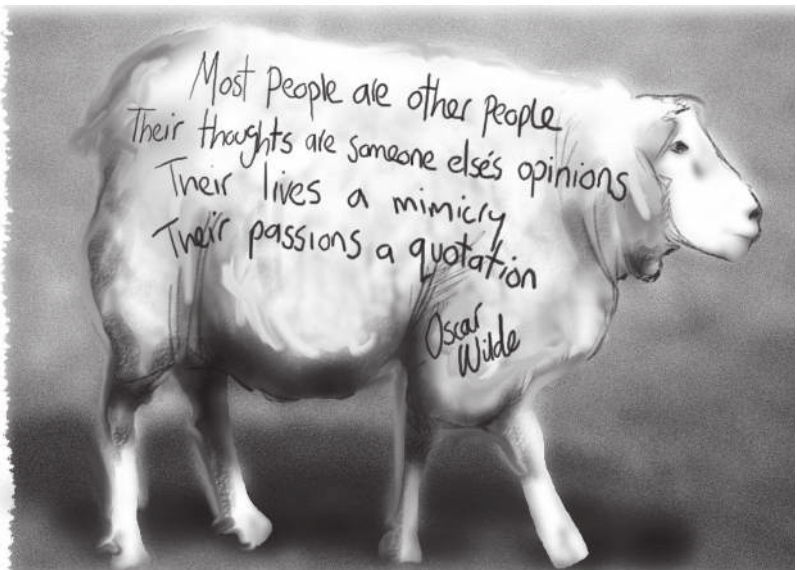 Most People are other people
Their thoughts are someone else's opinions
Their lives a mimicry
Their passions a quotation
Oscar
Wilde